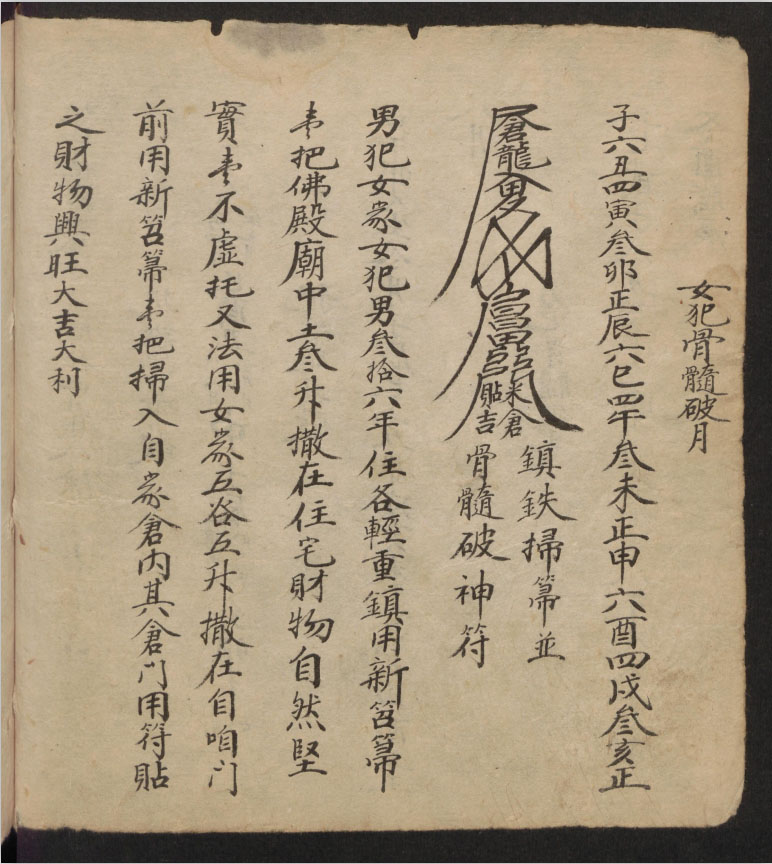 女犯骨髓破月
子六丑四寅叁卯正辰六巳四午叁未正申六酉四戌叁亥正
米倉
貼吉
鎮鉄掃箒並
骨髓破神符
男犯女家女犯男叁拾六年住各輕重鎮用新笤箒
壹把佛殿廟中土叁升撒在住宅財物自然堅
實壹不虛托又法用女家五谷五升撒在自咱门
前用新笤箒壹把掃入自家倉內其倉门用符貼
之財物興旺大吉大利